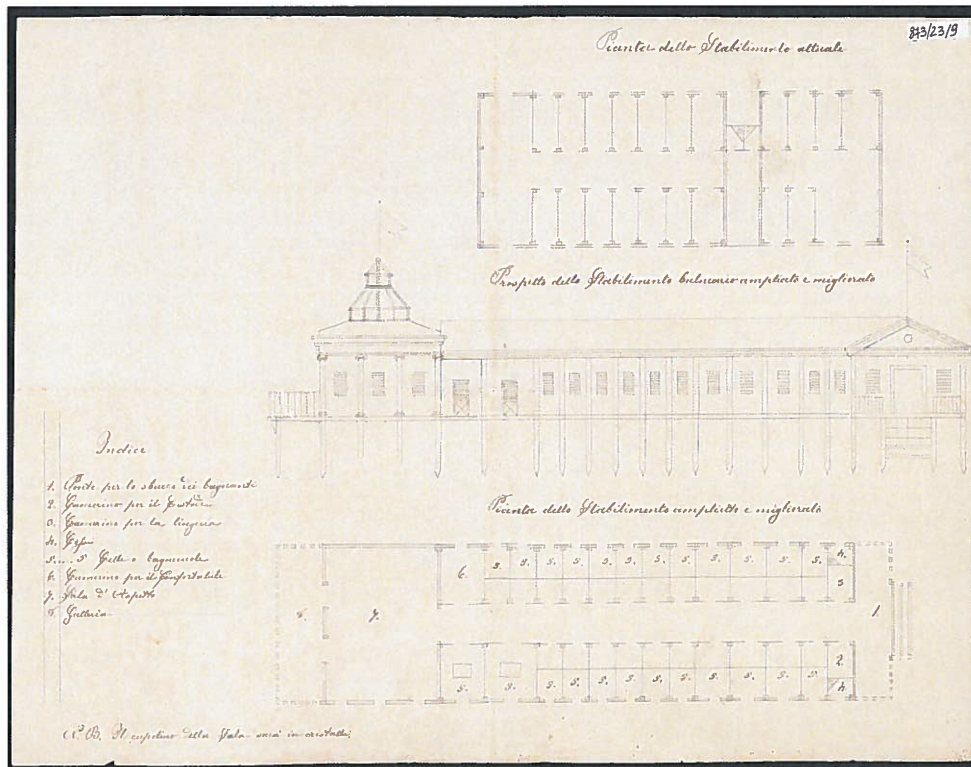 873/23/9
Pianta dello Stabilimento attuale
Prospetto dello Stabilimento balneario ampliato e migliorato
Indice
1. Ponte per lo sbarco dei bagnanti
2. Camerino per il Custode
3. Camerino per la lingeria
4. Cessi
5....5 Celle o bagnarole
6. Camerino per il Confortabile
7. Sala d'Aspetto
8. Galleria
Pianta dello Stabilimento ampliato e migliorato
8. 7. 6. 5. 5. 5. 5. 5. 5. 5. 5. 5. 5. 5. 4.
3
1.
2.
5. 5. 5. 5. 5. 5. 5. 5. 5. 5. 5. 5. 4.
N.B. Il cupolino della Sala sarà in cristalli.